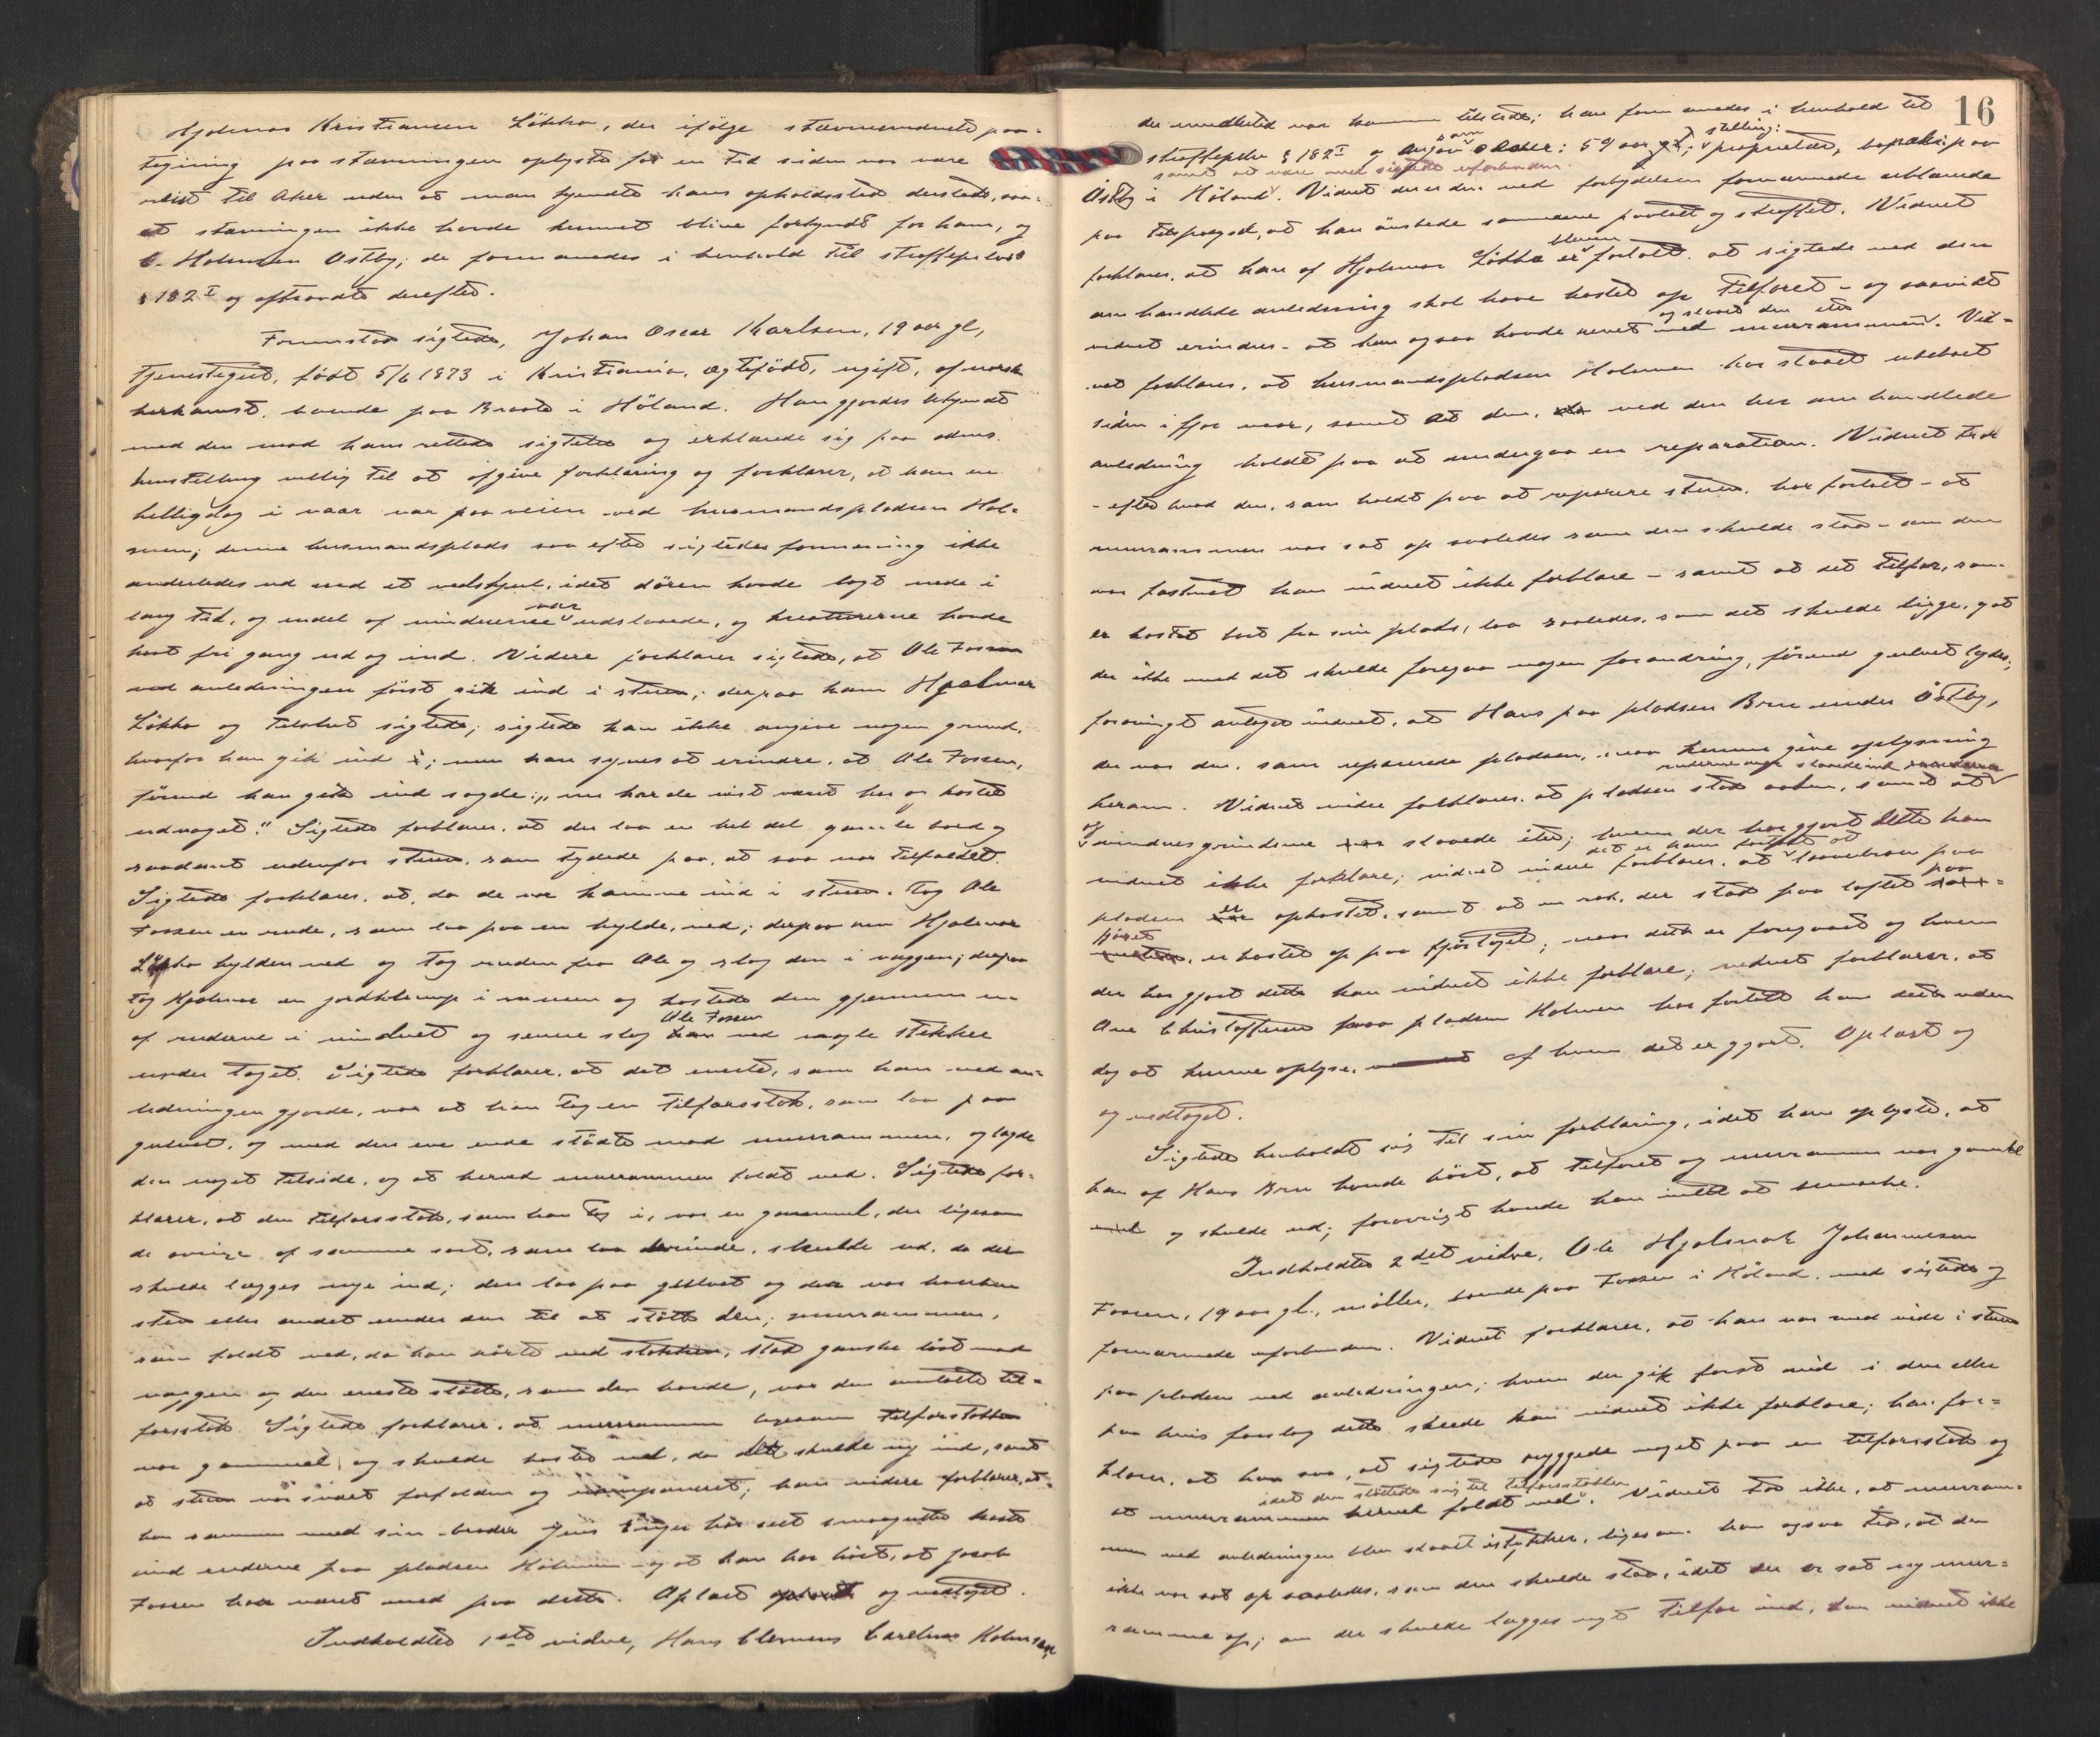 Hjalmar Kristiansen Løkka, der ifølge stævnevidnets paa-
tegning paa stævningen oplystes for en tid siden var være
reist til Aker uden at man kjendte hans opholdssted dersteds, saa-
at stævningen ikke havde kunnet blive forkyndt for ham, og
C. Holmsen Østby; de formanedes i henhold til straffeproc's
§ 182 I og aftraadte derefter.
Foranstod sigtede, Johan Oscar Karlsen, 19 aar gl,
tjenestegut, født 5/6 1873 i Kristiania, ægtefødt, ugift, af norsk
herkomst, boende paa Braate i Høland. Han gjordes bekjendt
med den mod ham rettede sigtelse og erklærede sig paa adms.
henstilling villig til at afgive forklaring og forklarer, at han en
helligdag i vaar var paa veien ved husmandspladsen Hol-
men; denne husmandsplads saa efter sigtedes formening ikke
anderledes ud end et vedskjul, idet døren havde lagt nede i
lang tid, og endel af vinduerne var udslaaede, og kreaturerne havde
havt fri gang ud og ind. Videre forklarer sigtede, at Ole Fossen
ved anledningen først gik ind i stuen; derpaa kom Hjalmar
Løkka og tilslut sigtede; sigtede kan ikke angive nogen grund,
hvorfor han gik ind; men han synes at erindre, at Ole Fossen,
førend han gik ind sagde: "nu har de vist været her og kastet
ud noget." Sigtede forklarer, at der laa en hel del gamle bord og
saadant udenfor stuen, som tydede paa, at saa var tilfældet.
Sigtede forklarer, at, da de var komne ind i stuen, tog Ole
Fossen en rude, som laa paa en hylde, ned; derpaa rev Hjalmar
Løkka hylden ned og tog ruden fra Ole og slog den i væggen; derpaa
tog Hjalmar en jordklump i muren og kastede den gjennem en
af ruderne i vinduet og senere slog Ole Fossen ned nogle stikker
under taget. Sigtede forklarer, at det eneste, som han ved an-
ledningen gjorde, var at han tog en tilfarsstok, som laa paa
gulvet, og med den ene ende stødte mod murrammen, og lagde
den noget tilside, og at herved murrammen faldt ned. Sigtede for-
klarer, at den tilfarsstok, som han tog i, var en gammel, der ligesom
de øvrige af samme sort, som laa derinde, skulde ud, da der
skulde lægges nye ind; den laa paa gulvet og der var hverken
sten eller andet under den til at støtte den; murrammen,
som faldt ned, da han rørte ved stokken, stod ganske løst mod
væggen og den eneste støtte, som den havde, var den omtalte til-
farsstok. Sigtede forklarer, at murrammen ligesom tilfarsstokken
var gammel og skulde kastes ud, da der skulde ny ind, samt
at stuen var svært forfalden og ramponeret; han videre forklarer, at
han sammen med sin broder Jens har seet smaagutter kaste
ind ruderne paa pladsen Holmen og at han har hørt, at Jacob
Fossen har været med paa dette. Oplæst og vedtaget.
Indkaldtes 1ste vidne, Hans Clemens Carelius Holmsen,
16
der imidlertid var kommen tilstede; han formanedes i henhold til
straffeproc's § 182 I og angav som alder: 59 aar gl, stilling: proprietær, bopæl: paa
samt at være med sigtede uforbunden
Østby i Høland. Vidnet der er den ved forbrydelsen fornærmede erklærede
paa tilspørgsel, at han ønskede samme paatalt og straffet. Vidnet
forklarer, at han af Hjalmar Løkka er bleven fortalt, at sigtede ved den
omhandlede anledning skal have kastet op tilfaret - og saavidt
vidnet erindrer - at han ogsaa havde revet ned murrammen og slaaet den itu. Vid-
net forklarer, at husmandspladsen Holmen har staaet ubeboet
siden ifjor vaar, samt at den, ved den her omhandlede
anledning holdt paa at undergaa en reparation. Vidnet tror
- efter hvad den, som holdt paa at reparere stuen, har fortalt - at
murrammen var sat op saaledes som den skulde staa - om den
var fastnet kan vidnet ikke forklare - samt at det tilfar, som
er kastet bort fra sin plads, laa saaledes, som det skulde ligge, og at
der ikke med det skulde foregaa nogen forandring, førend gulvet lagdes;
forøvrigt antager vidnet, at Hans paa pladsen Bru under Østby,
der var den, som reparerede pladsen, maa kunne give oplysning
herom. Vidnet videre forklarer, at pladsen stod aaben, samt at ruderne var slaaede ind
og vinduesgrinderne slaaede itu; hvem der har gjort dette kan
vidnet ikke forklare; vidnet videre forklarer, at det er ham fortalt at laavebroen paa
pladsen er opkastet, samt at en rok, der stod paa loftet paa
huset, er kastet op paa fjøstaget; naar dette er foregaaet og hvem
der har gjort dette kan vidnet ikke forklare; vidnet forklarer, at
Ane Christoffersen paa pladsen Holmen har fortalt ham dette uden
dog at kunne oplyse, af hvem det er gjort. Oplæst og
og vedtaget.
Sigtede henholdt sig til sin forklaring, idet han oplyste, at
han af Hans Bru havde hørt, at tilfaret og murrammen var gamle
og skulde ud; forøvrigt havde han intet at bemærke.
Indkaldtes 2det vidne, Ole Hjalmar Johannesen
Fossen, 19 aar gl., møller, boende paa Fossen i Høland, med sigtede og
fornærmede uforbunden. Vidnet forklarer, at han var med inde i stuen
paa pladsen ved anledningen; hvem der gik først ind i den eller
paa hvis forslag dette skede kan vidnet ikke forklare; han for-
klarer, at han saa, at sigtede ryggede noget paa en tilfarsstok og
at murrammen herved faldt ned, idet den støttede sig til tilfarsstokken. Vidnet tror ikke, at murram-
men ved anledningen blev slaaet istykker, ligesom han ogsaa tror, at den
ikke var sat op saaledes, som den skulde staa, idet der er sat ny mur-
ramme op; om der skulde lægges nyt tilfar ind, kan vidnet ikke